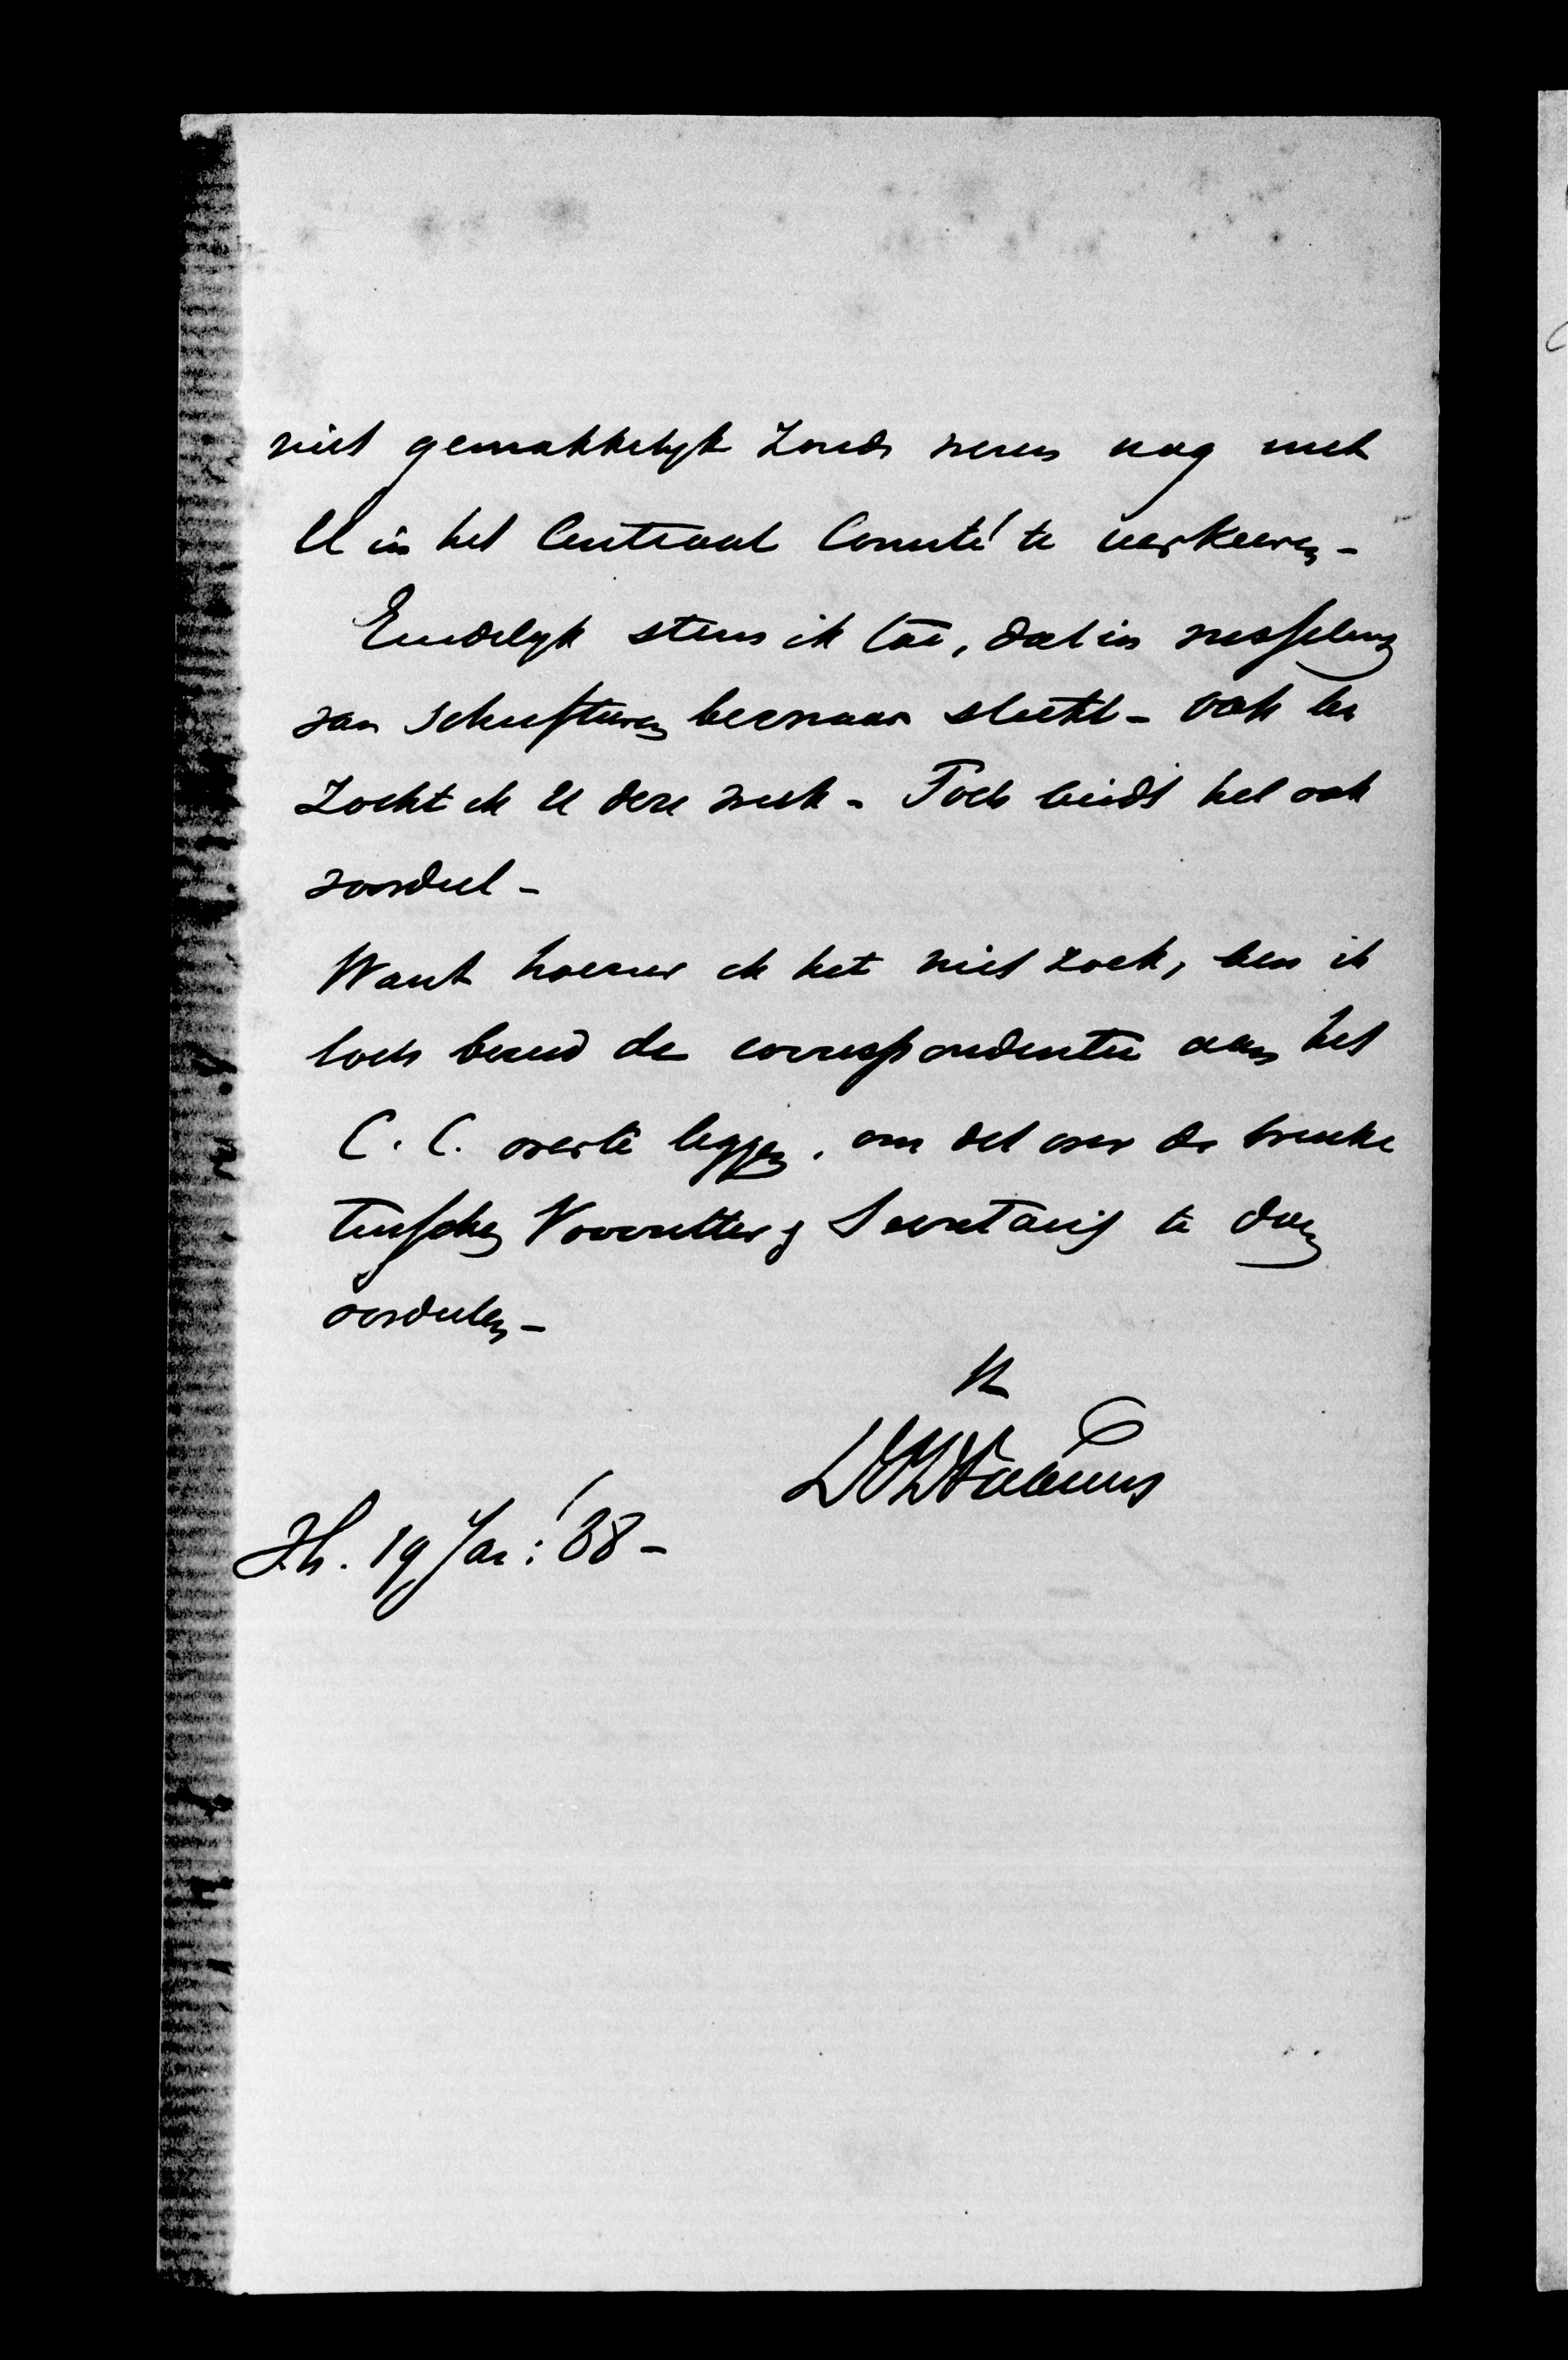 niet gemakkelyk zoude wezen nog met
U in het Centraal Comité te verkeeren -
Eindelyk stem ik toe, dat in wisseling
van schrifturen bezwaar steekt - ook be
zocht ik U deze week - Toch biedt het ook
voordeel -
Want hoezeer ik het niet zoek, ben ik
toch bereid de correspondentie aan het
C. C. over te leggen, om dat over de breuke
tusschen Voorzitter & Secretaris te doen
oordeelen -
DPD Fabius
Hh. 19 Jan: '88 -